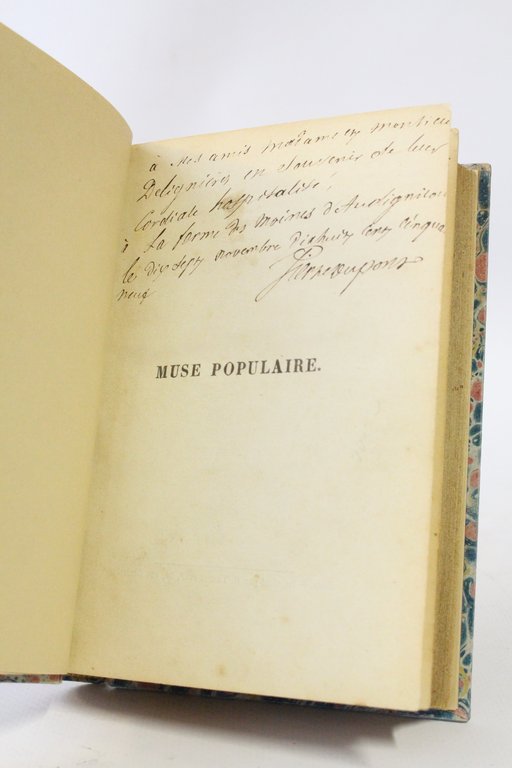 à Mes amis madame et monsieur
Delignières en souvenir de leur
Cordiale hospitalité,
à La ferme des moines
le dix sept novembre dixhuit cent cinqua
neuf
Pierre Dupont
MUSE POPULAIRE.